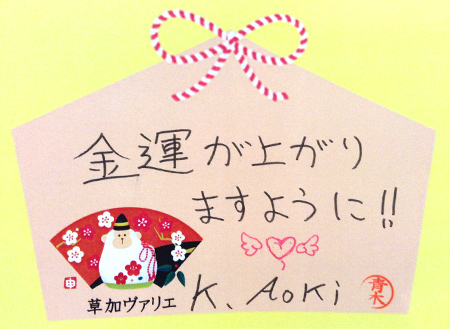 金運が上がり
ますように!!
申
草加ヴァリエ
K. AOKi
青木